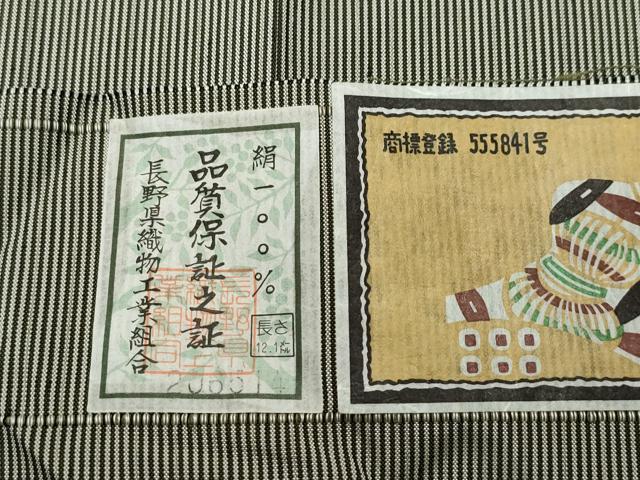 絹一〇〇%
品質保証之証
長野県織物工業組合
長さ
12.1メートル
商標登録 555841号